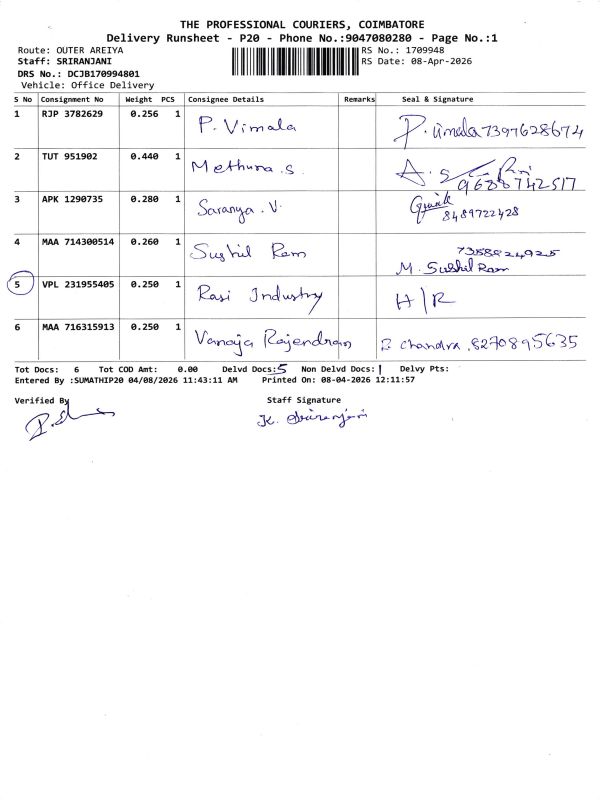 THE PROFESSIONAL COURIERS, COIMBATORE
Delivery Runsheet - P20 - Phone No.:9047080280 - Page No.:1
Route: OUTER AREIYA RS No.: 1709948
Staff: SRIRANJANI RS Date: 08-Apr-2026
DRS No.: DCJB170994801
Vehicle: Office Delivery
S No Consignment No Weight PCS Consignee Details Remarks Seal & Signature
1 RJP 3782629 0.256 1 P. Vimala P. Vimala 7397628674
2 TUT 951902 0.440 1 Methuna. S. A. S 9688742517
3 APK 1290735 0.280 1 Saranya. V. 8489722428
4 MAA 714300514 0.260 1 Sushil Ram 7358824925
M. Sushil Ram
5 VPL 231955405 0.250 1 Rasi Industry H/R
6 MAA 716315913 0.250 1 Vanaja Rajendran Chandra. 8270895635
Tot Docs: 6 Tot COD Amt: 0.00 Delvd Docs: 5 Non Delvd Docs: 1 Delvy Pts:
Entered By :SUMATHIP20 04/08/2026 11:43:11 AM Printed On: 08-04-2026 12:11:57
Verified By Staff Signature
K. Sriranjani